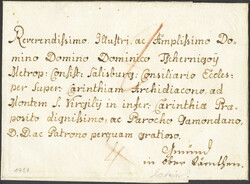 Reverendissimo, Illustri, ac Amplissimo Do-
mino Domino Dominico Tschernigoy
Metrop: Consist: Salisburg: Consiliario Eccles:
per Super: Carinthiam Archidiacono, ad
Montem S. Virgily in infer: Carinthia Præ-
posito dignissimo, ac Parocho Gamondano,
D. D. ac Patrono perquam gratioso.
Gmünd
in ober Cärnthen.